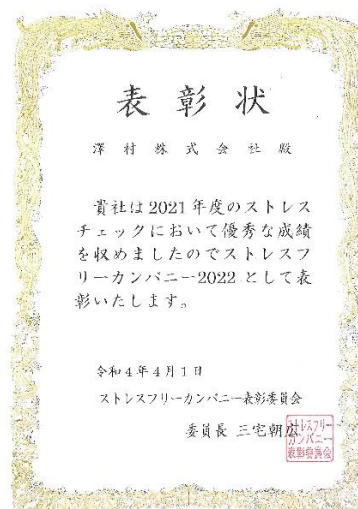 表彰状
澤村株式会社殿
貴社は2021年度のストレス
チェックにおいて優秀な成績
を収めましたのでストレスフ
リーカンパニー2022として表
彰いたします。
令和4年4月1日
ストレスフリーカンパニー表彰委員会
委員長 三宅朝広
ストレスフリー
カンパニー
表彰委員会